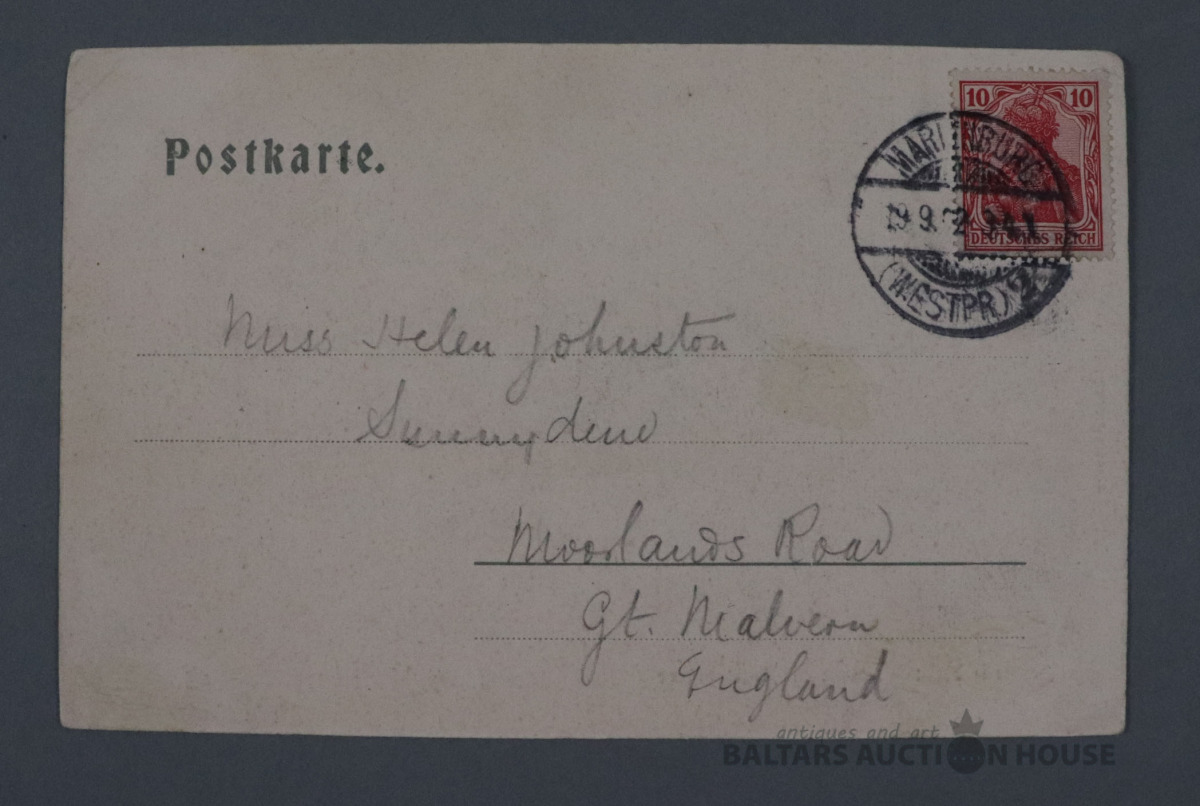 Postkarte.
10 10
DEUTSCHES REICH
MARIENBURG
(WESTPR.) 2
Miss Helen Johnston
Sunnydene
Moorlands Road
Gt. Malvern
England
antiques and art
BALTARS AUCTION HOUSE